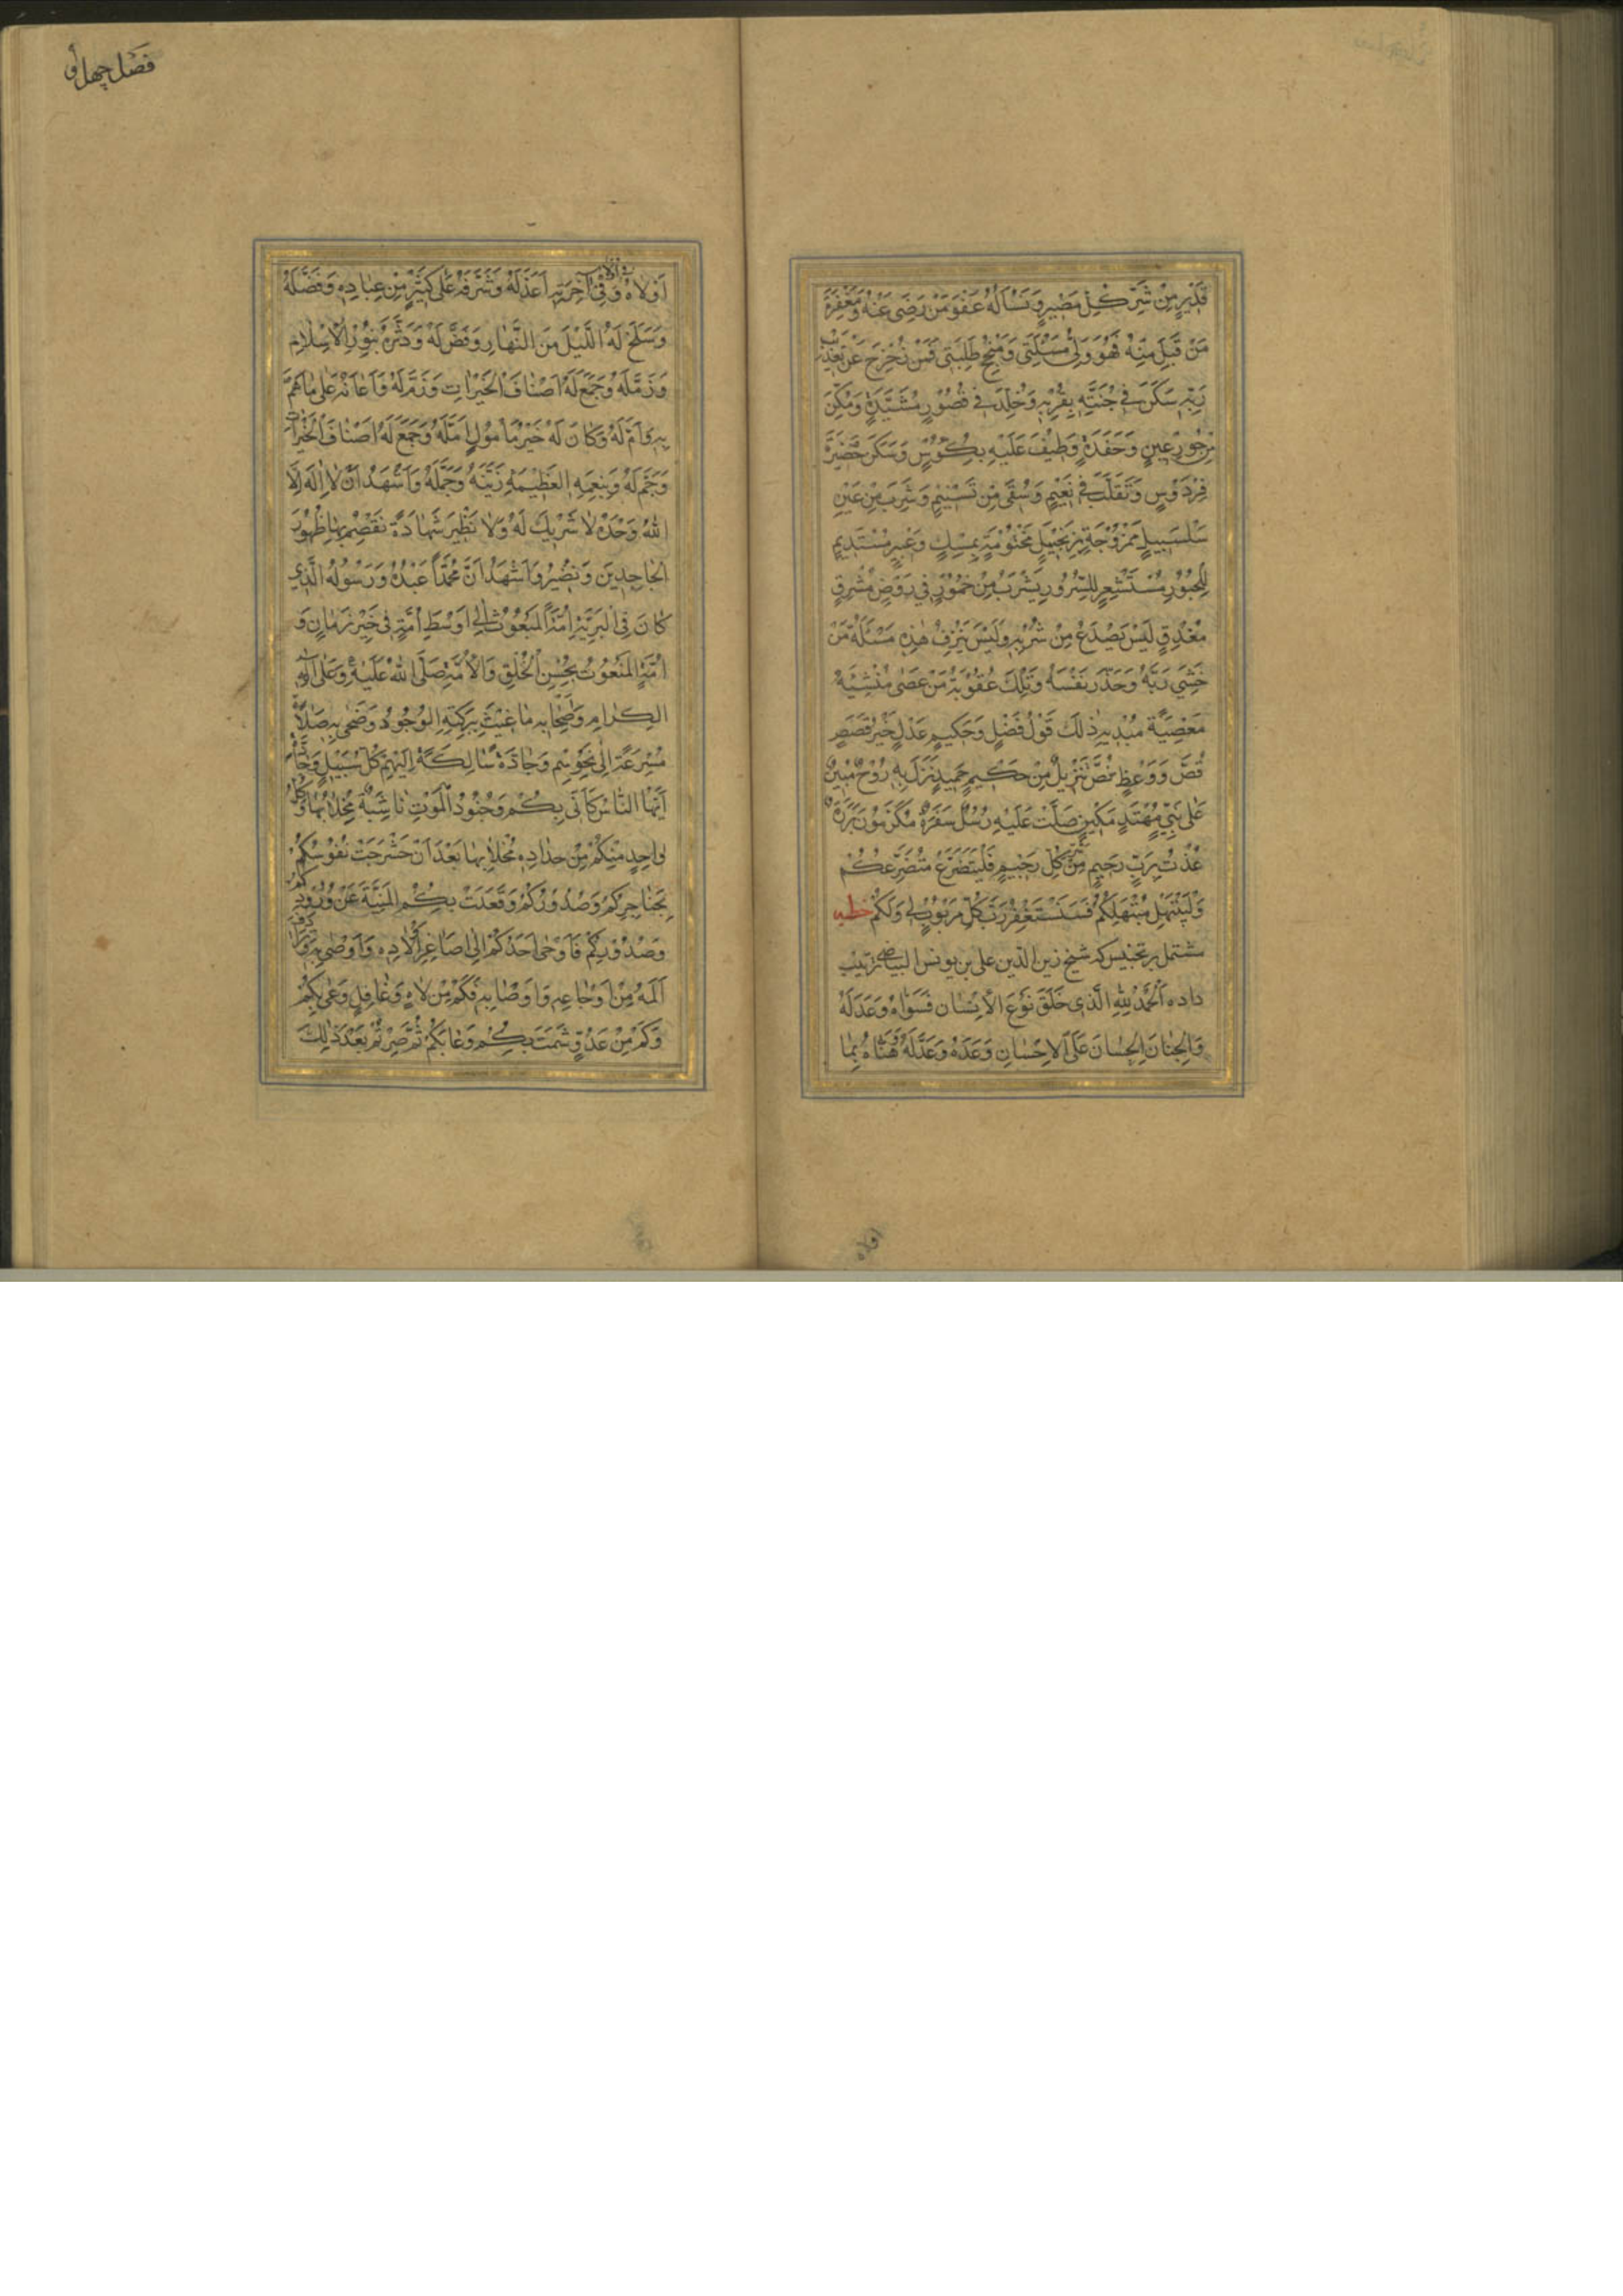 قَدِيرٍ مِنْ شَرِّ كُلِّ مَضِيرٍ وَنَسْأَلُهُ عَفْوَ مَنْ رَضِيَ عَنْهُ وَمَغْفِرَةَ
مَنْ قَبِلَ مِنْهُ فَهُوَ وَلِيُّ مَسْئَلَتِي وَمُنْجِحُ طَلِبَتِي فَمَنْ زُحْزِحَ عَنْ تَعْذِيبِ
رَبِّهِ سَكَنَ فِي جَنَّتِهِ بِقُرْبِهِ وَخُلِّدَ فِي قُصُورٍ مُشَيَّدَةٍ وَمُكِّنَ
مِنْ حُورٍ عِينٍ وَحَفَدَةٍ وَطِيفَ عَلَيْهِ بِكُؤُسٍ وَسَكَنَ حَضِيرَةَ
فِرْدَوْسٍ وَتَقَلَّبَ فِي نَعِيمٍ وَسُقِيَ مِنْ تَسْنِيمٍ وَشَرِبَ مِنْ عَيْنٍ
سَلْسَبِيلٍ مَمْزُوجَةٍ بِزَنْجَبِيلٍ مَخْتُومَةٍ بِمِسْكٍ وَعَبِيرٍ مُسْتَدِيمٍ
لِلْحُبُورِ مُسْتَشْعِرٍ لِلسُّرُورِ يَشْرَبُ مِنْ خُمُورٍ فِي رَوْضٍ مُشْرِقٍ
مُغْدِقٍ لَيْسَ يَصْدَعُ مِنْ شُرْبِهِ وَلَيْسَ يَنْزِفُ هٰذِهِ مَسْئَلَةُ مَنْ
خَشِيَ رَبَّهُ وَحَذَّرَ نَفْسَهُ وَتِلْكَ عُقُوبَةُ مَنْ عَصٰى مُنْشِيَهُ
مَعْصِيَةَ مُبْدِيهِ ذٰلِكَ قَوْلٌ فَصْلٌ وَحَكِيمٍ عَدْلٍ خَيْرُ قَصَصٍ
قُصَّ وَوَعْظٍ نُصَّ تَنْزِيلٌ مِنْ حَكِيمٍ حَمِيدٍ نَزَلَ بِهِ رُوحٌ مُبِينٌ
عَلٰى نَبِيٍّ مُهْتَدٍ مَكِينٍ صَلَّتْ عَلَيْهِ رُسُلٌ سَفَرَةٌ مُكَرَّمُونَ بَرَرَةٌ
عُذْتُ بِرَبٍّ رَحِيمٍ مِنْ شَرِّ كُلِّ رَجِيمٍ فَلْيَتَضَرَّعْ مُتَضَرِّعُكُمْ
وَلْيَبْتَهِلْ مُبْتَهِلُكُمْ فَنَسْتَغْفِرُ رَبَّ كُلِّ مَرْبُوبٍ لِي وَلَكُمْ خطبه
مشتمل بر تجنیس که شیخ زین الدین علی بن یونس البیاضی ترتیب
داده اَلْحَمْدُ لِلّٰهِ الَّذِي خَلَقَ نَوْعَ الْاِنْسَانِ فَسَوَّاهُ وَعَدَلَهُ
وَالْجِنَانَ الْحِسَانَ عَلَى الْاِحْسَانِ وَعَدَهُ وَعَدَّلَهُ هَنَّاهُ بِمَا
اولاه
فصل چهل و
اَوْلَاهُ وَفِي آخِرَتِهِ اَعَدَّ لَهُ وَشَرَّفَهُ عَلٰى كَثِيرٍ مِنْ عِبَادِهِ وَفَضَّلَهُ
وَسَلَخَ لَهُ اللَّيْلَ مِنَ النَّهَارِ وَفَضَّ لَهُ وَدَثَّرَهُ بِنُورِ الْاِسْلَامِ
وَزَمَّلَهُ وَجَمَعَ لَهُ اَصْنَافَ الْخَيْرَاتِ وَزَمَّ لَهُ وَاَعَانَهُ عَلٰى مَا هَمَّ
بِهِ وَاَمَّ لَهُ وَكَانَ لَهُ خَيْرَ مَأْمُولٍ اَمَّلَهُ وَجَمَعَ لَهُ اَصْنَافَ الْخَيْرَاتِ
وَجَمَّ لَهُ وَبِنِعَمِهِ الْعَظِيمَةِ زَيَّنَهُ وَجَمَّلَهُ وَاَشْهَدُ اَنْ لَا اِلٰهَ اِلَّا
اللّٰهُ وَحْدَهُ لَا شَرِيكَ لَهُ وَلَا نَظِيرَ شَهَادَةً نَقْصِمُ بِهَا ظُهُورَ
الْجَاحِدِينَ وَنَضِيرُ وَاَشْهَدُ اَنَّ مُحَمَّدًا عَبْدُهُ وَرَسُولُهُ الَّذِي
كَانَ فِي الْبَرِيَّةِ اَمَنَةً الْمَبْعُوثُ اِلٰى اَوْسَطِ اُمَّةٍ فِي خَيْرِ زَمَانٍ وَ
اُمَّةٍ الْمَنْعُوتُ بِحُسْنِ الْخَلْقِ وَالْاُمَّةِ صَلَّى اللّٰهُ عَلَيْهِ وَعَلٰى آلِهِ
الْكِرَامِ وَصِحَابِهِ مَا غِيثَ بِبَرَكَتِهِ الْوُجُودُ وَضَحٰى بِهِ صَلَاةً
مُسْرِعَةً اِلٰى نَحْوِهِمْ وَجَادَّةً سَالِكَةً اِلَيْهِمْ كُلَّ سَبِيلٍ وَجَادَّةٍ
اَيُّهَا النَّاسُ كَاَنِّي بِكُمْ وَجُنُودُ الْمَوْتِ نَاشِبَةٌ مَخَالِبُهَا وَكُلُّ
وَاحِدٍ مِنْكُمْ مِنْ حِدَادِهِ مُخْلًا بِهَا بَعْدَ اَنْ حَشْرَجَتْ نُفُوسُكُمْ
بِحَنَاجِرِكُمْ وَصُدُورِكُمْ وَقَعَدَتْ بِكُمُ الْمَنِيَّةُ عَنْ وُرُودِكُمْ
وَصُدُورِكُمْ فَاَوْحٰى اَحَدُكُمْ اِلٰى اَصَاغِرِ اَوْلَادِهِ وَاَوْصٰى بِهِ
اَلَمُهُ مِنْ اَوْجَاعِهِ وَاَوْصَابِهِ فَكَمْ مِنْ لَاهٍ وَغَافِلٍ وَعٰى بِكُمْ
وَكَمْ مِنْ عَدُوٍّ شَمَتَ بِكُمْ وَعَابَكُمْ ثُمَّ صِرْتُمْ بَعْدَ ذٰلِكَ